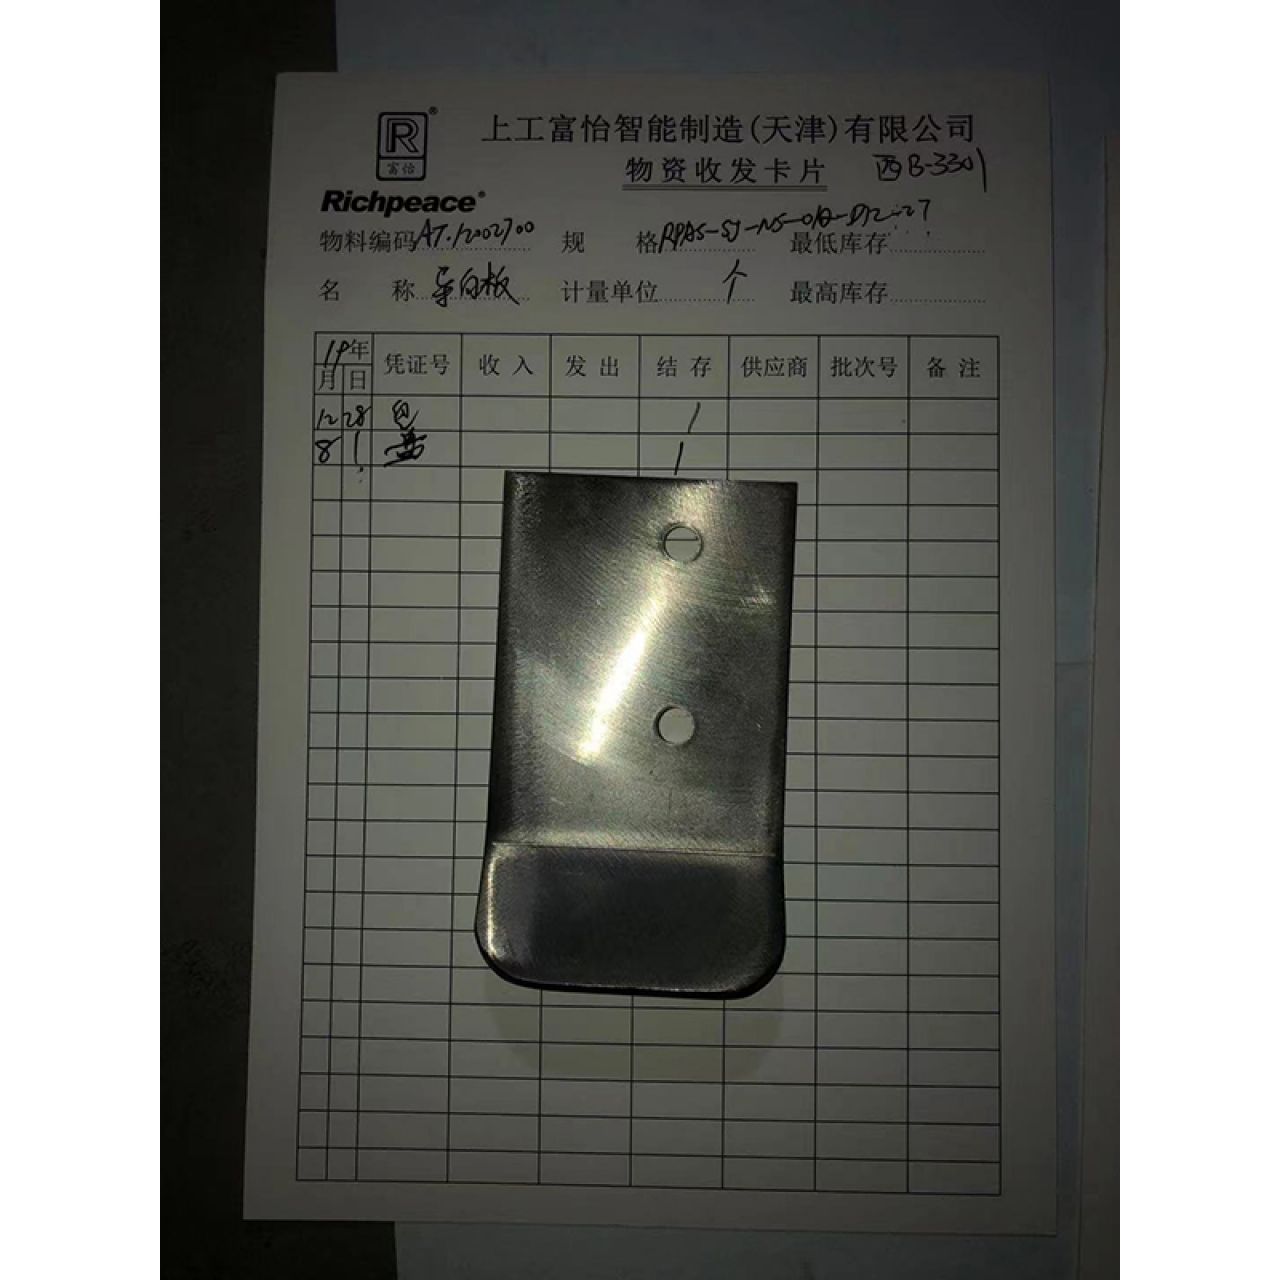 R®
富怡
Richpeace®
上工富怡智能制造(天津)有限公司
物资收发卡片 西B-3301
物料编码 AT.12002700 规格 最低库存
名称 导向板 计量单位 个 最高库存
19年 凭证号 收入 发出 结存 供应商 批次号 备注
月 日
12 28 1
8 1 1